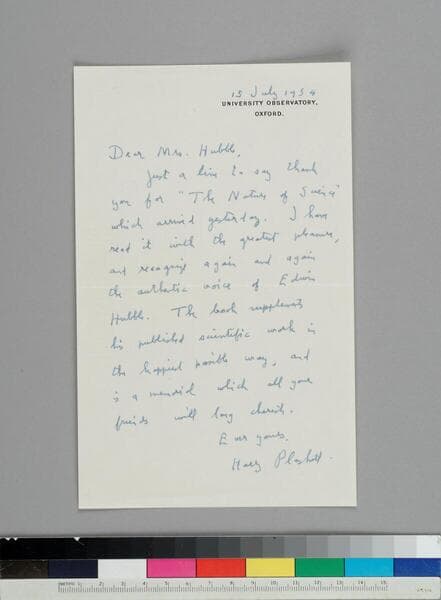 15 July 1954
UNIVERSITY OBSERVATORY,
OXFORD.
Dear Mrs. Hubble,
Just a line to say thank
you for "The Nature of Science"
which arrived yesterday. I have
read it with the greatest pleasure,
and recognize again and again
the authentic voice of Edwin
Hubble. The book supplements
his published scientific work in
the happiest possible way, and
is a memorial which all your
friends will long cherish.
Ever yours,
Harry Plaskett.
1 2 3 4 5 6 7 8 9 10 11 12 13 14 15